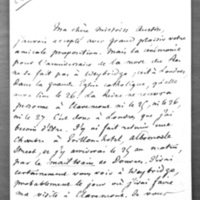 Ma chère Mistress Austin,
j'aurais accepté avec grand plaisir votre
amicale proposition. Mais la cérémonie
pour l'anniversaire de la mort du Roi
ne se fait pas à Weybridge, c'est à Londres
dans la grande Église catholique, qu'elle
aura lieu le 26. La Reine ne recevra
personne à Claremont ni le 25, ni le 26,
ni le 27. C'est donc à Londres que j'ai
besoin d'être. J'y ai fait retenir une
chambre à hôtel, Albemarle
Street, et j'y arriverai le 25 au matin
par le mail train de Douvres. J'irai
certainement vous voir à Weybridge,
probablement le jour où j'irai faire
ma visite à Claremont. Je vous